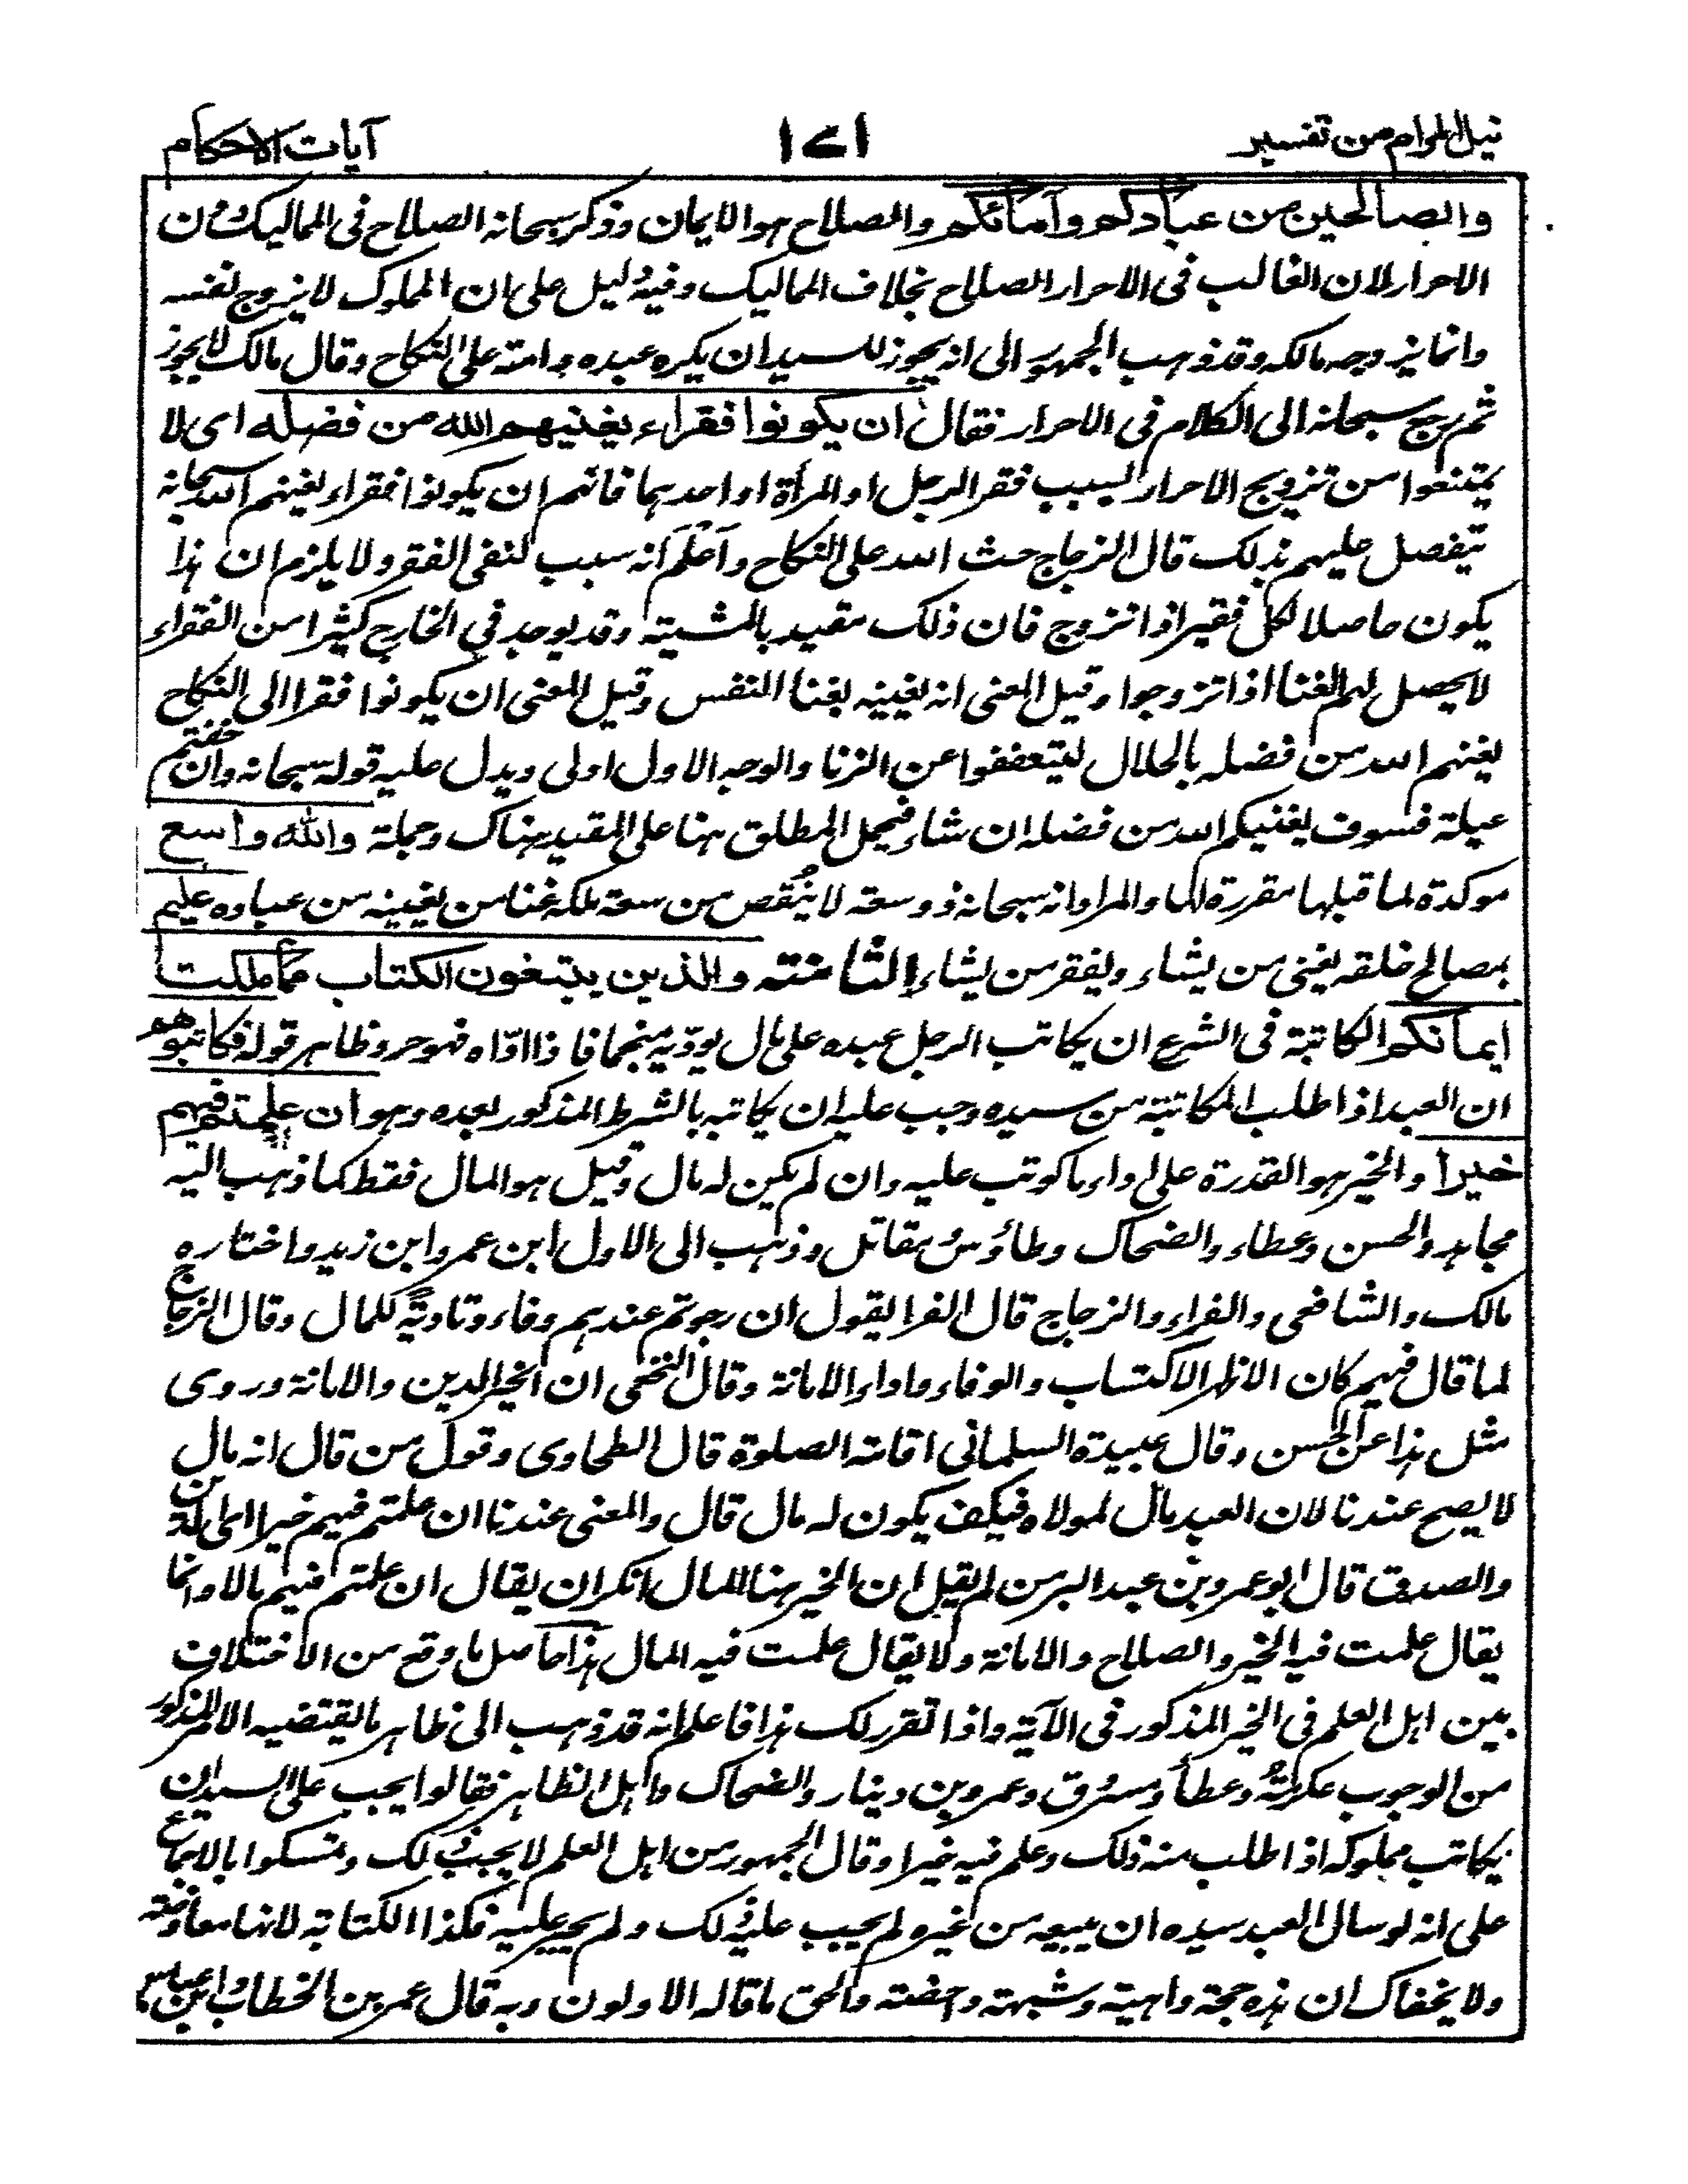 نيل المرام من تفسير
١٧١
آيات الاحكام
والصالحين من عبادكم وآمائكم والصلاح هو الايمان وذكر سبحانه الصلاح فى المماليك دون
الاحرار لان الغالب فى الاحرار الصلاح بخلاف المماليك وفيه دليل على ان المملوك لا يزوج نفسه
وانما يزوجه مالكه وقد ذهب الجمهور الى انه يجوز للسيد ان يكره عبده وامته على النكاح وقال مالك لا يجوز
ثم رجع سبحانه الى الكلام فى الاحرار فقال ان يكونوا فقراء يغنيهم الله من فضله اى لا
يمتنعوا من تزويج الاحرار لسبب فقر الرجل او المرأة او احدهما فانهم ان يكونوا فقراء يغنهم الله سبحانه
تيفصل عليهم بذلك قال الزجاج حث الله على النكاح وآعلم آنه سبب لنفى الفقر ولا يلزم ان هذا
يكون حاصلا لكل فقير اذا تزوج فان ذلك مقيد بالمشيته وقد يوجد فى الخارج كثيرا من الفقراء
لا يحصل لهم الغنا اذا تزوجوا وقيل المعنى انه يغنيه بغنا النفس وقيل المعنى ان يكونوا فقرا الى النكاح
يغنهم الله من فضله بالحلال ليتعففوا عن الزنا والوجه الاول اولى ويدل عليه قوله سبحانه وان خفتم
عيلة فسوف يغنيكم الله من فضله ان شاء فيحمل المطلق هنا على المقيد هناك وجملة والله واسع
موكدة لما قبلها مقررة لها والمراد انه سبحانه ذو وسعة لا ينقص من سعة ملكه غنا من يغينه من عباده عليم
بمصالح خلقه يغنى من يشاء ويفقر من يشاء الثامنته والذين يبتغون الكتاب مما ملكت
ايمانكم الكاتبة فى الشرع ان يكاتب الرجل عبده على مال يودّيه منجما فاذا ادّاه فهو حر وظاهر قوله فكاتبوهم
ان العبد اذا طلب المكاتبة من سيده وجب عليه ان يكاتبه بالشرط المذكور بعده وهو ان علمتم فيهم
خيرا والخير هو القدرة على اداء ما كوتب عليه وان لم يكن له مال وقيل هو المال فقط كما ذهب اليه
مجاهد والحسن وعطاء والضحاك وطاؤس ومقاتل وذهب الى الاول ابن عمر وابن زيد واختاره
مالك والشافعى والفراء والزجاج قال الفرا يقول ان رجوتم عندهم وفاء وتادية للمال وقال الزجاج
لما قال فيهم كان الاظهر الاكتساب والوفاء واداء الامانة وقال النخعى ان الخير الدين والامانة وروى
مثل هذا عن الحسن وقال عبيدة السلمانى اقامة الصلوة قال الطحاوى وقول من قال انه مال
لا يصح عندنا لان العبد مال لمولاه فيكف يكون له مال قال والمعنى عندنا ان علمتم فيهم خيرا اى الدين
والصدق قال ابو عمرو بن عبد البر من لم يقل ان الخير هنا المال انكر ان يقال ان علمتم فيهم مالا وانما
يقال علمت فيه الخير والصلاح والامانة ولا يقال علمت فيه المال هذا حاصل ما وقع من الاختلاف
بين اهل العلم فى الخير المذكور فى الآية واذا تقرر لك هذا فاعلم انه قد ذهب الى ظاهر ما يقتضيه الامر المذكور
من الوجوب عكرمة وعطأ ومسروق وعمرو بن دينار والضحاك واهل الظاهر فقالوا يجب على السيد ان
يكاتب مملوكه اذا طلب منه ذلك وعلم فيه خيرا وقال الجمهور من اهل العلم لا يجب ذلك وتمسكوا بالاجماع
على انه لو سال العبد سيده ان يبيعه من غيره لم يجب عليه ذلك ولم يجبر عليه فكذا الكتابة لانها معاوضته
ولا يخفاك ان هذه حجة واهية وشبهته داحضته والحق ما قاله الاولون وبه قال عمر بن الخطاب وابن عباس